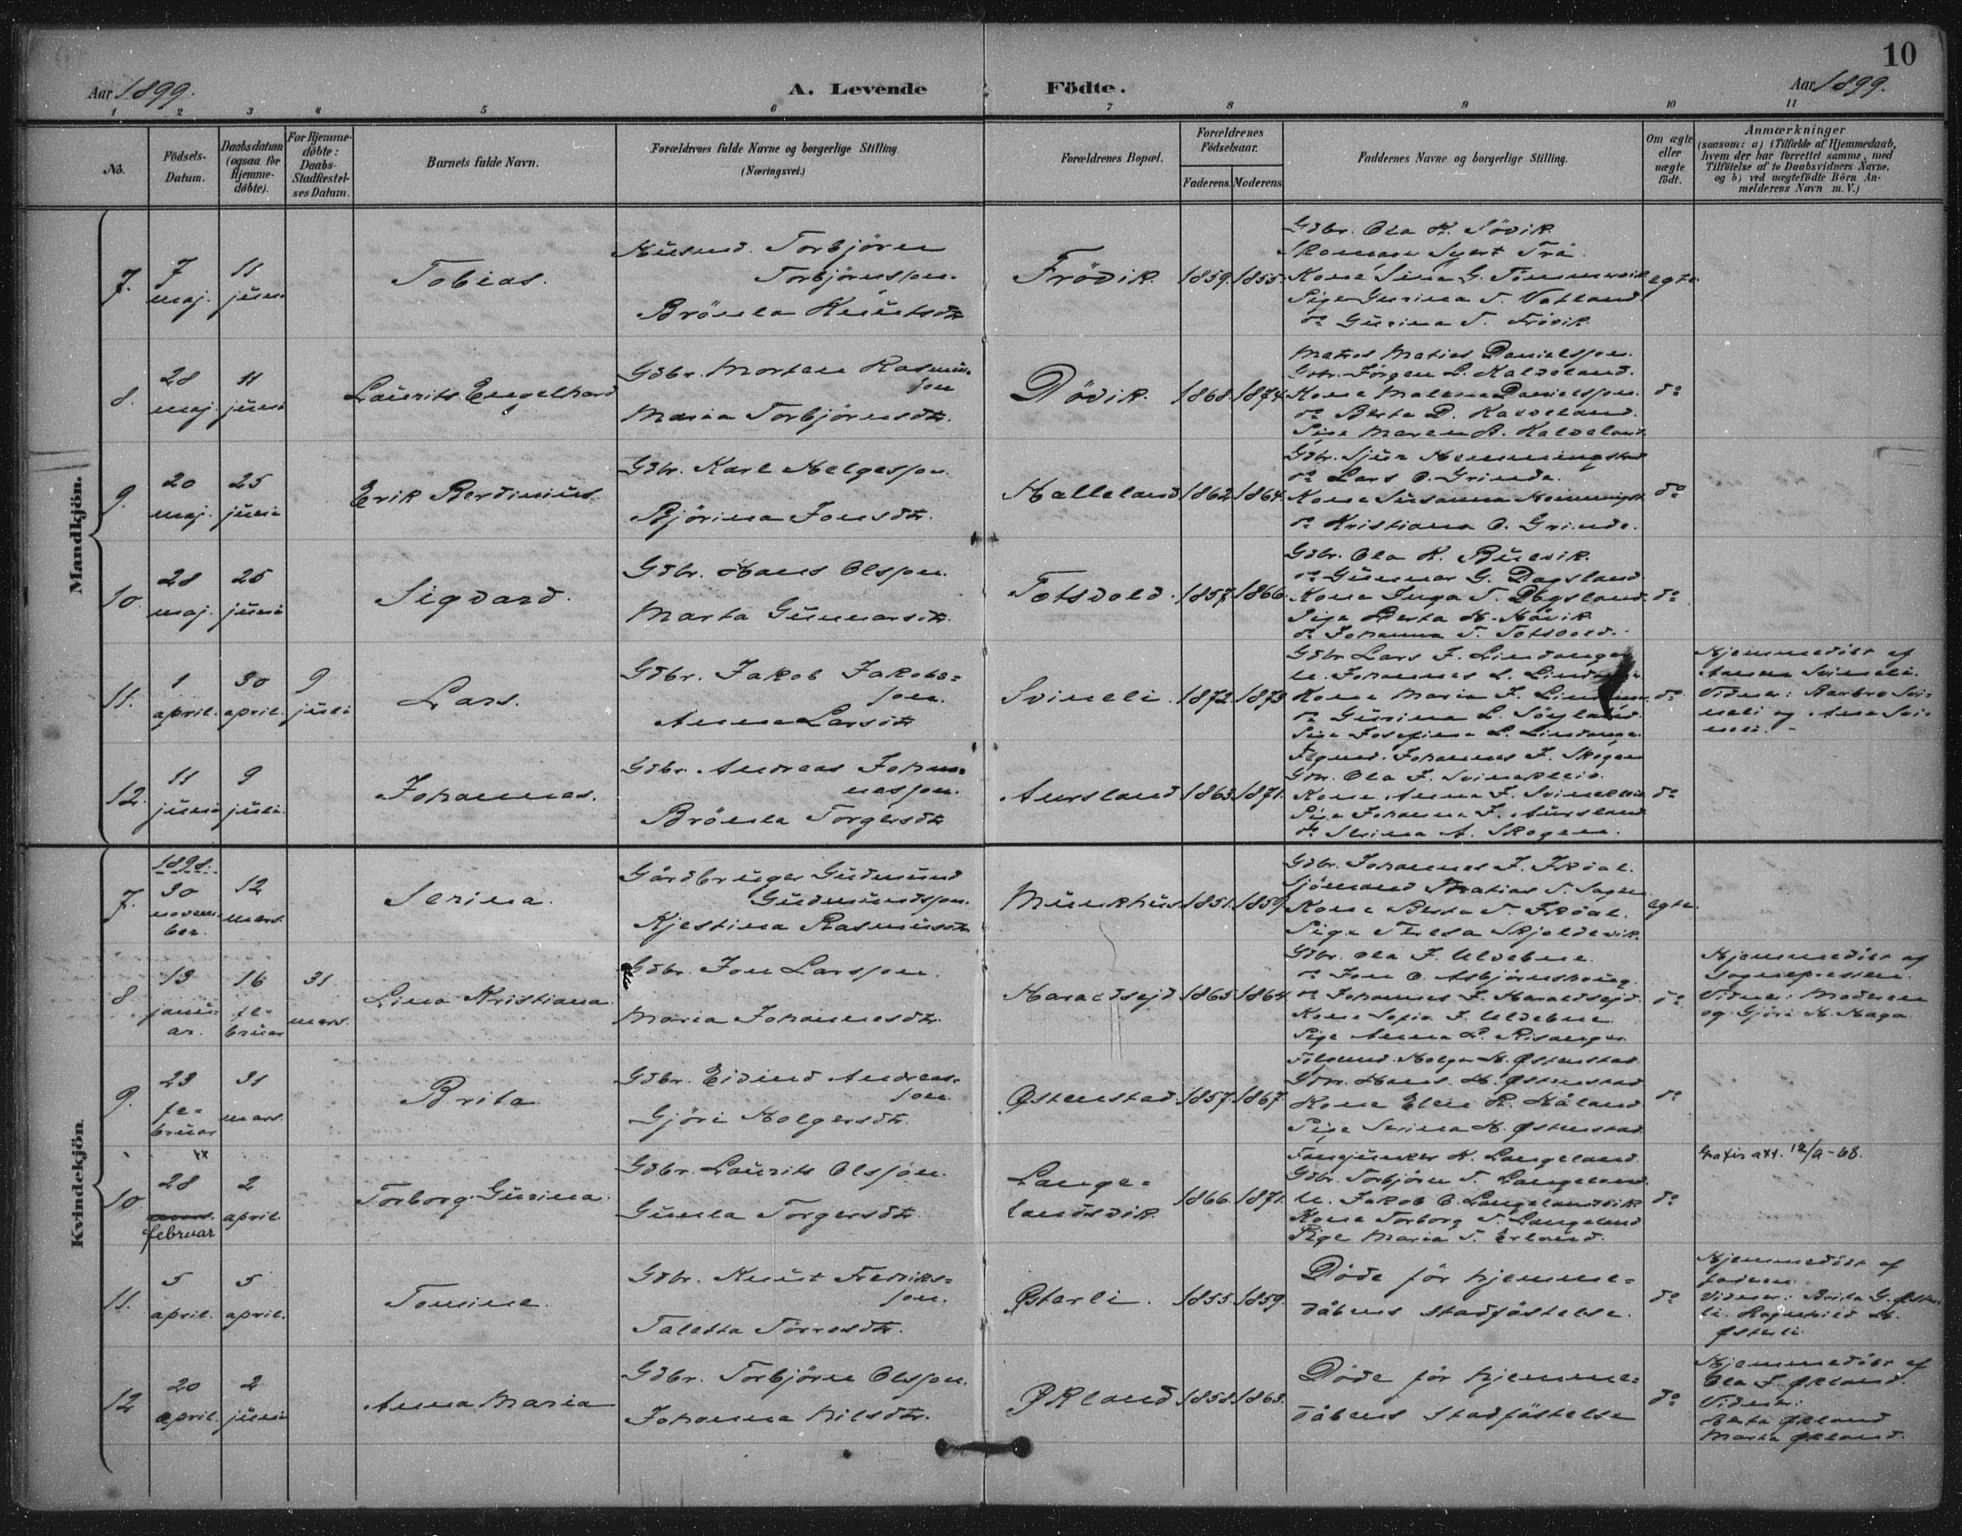 10
Aar 1899.
A. Levende
Födte.
Aar 1899.
1 2 3 4 5 6 7 8 9 10 11
No.
Födsels-
Datum.
Daabsdatum
(ogsaa for
Hjemme-
döbte).
For Hjemme-
döbte:
Daabs-
Stadfæstel-
ses Datum.
Barnets fulde Navn.
Forældrenes fulde Navne og borgerlige Stilling.
(Næringsvei.)
Forældrenes Bopæl.
Forældrenes
Födselsaar.
Faderens. Moderens.
Faddernes Navne og borgerlige Stilling.
Om ægte
eller
uægte
födt.
Anmærkninger
(saasom: a) i Tilfælde af Hjemmedaab,
hvem der har forrettet samme, med
Tilföielse af to Daabsvidners Navne,
og b) ved uægtefödte Börn An-
melderens Navn m. V.)
Mandkjön.
7.
7
maj.
11
juni
Tobias.
Husmd. Torbjören
Torbjörnsson.
Bröula Knutsdtr
Frödik
1859. 1855.
Gdbr. Ola K. Södik
Kone Sina G.
Pige Gurina T. Vatland
do Gurina T. Frövik
egte.
8.
28
maj
11
juni
Laurits Engelhard
Gdbr. Morten Rasmus-
son
Maria Torbjörnsdtr.
Dödik.
1868. 1874.
Matros Matias Danielsson.
Gdbr. Jörgen L. Kaldeland.
Kone Malena Danielsson.
do Berta D. Kaldeland.
Pige Maren A. Kaldeland.
do
9.
20
maj.
25
juni
Erik Berdinius.
Gdbr. Karl Helgesson.
Björina Jonsdtr.
Halleland
1862. 1864.
Gdbr. Sjur Hemmingstad
do Lars O. Grinde.
Kone Susanna Hemmingst.
do Kristiana O. Grinde.
do
10
28
maj.
25
juni
Sigvard.
Gdbr. Hans Olsson.
Marta Gunnarsdtr.
Totsvold.
1857. 1866.
Gdbr. Ola K.
do Gunnar G. Dagsland
Kone Inga T. Dagsland.
Pige Berta H. Håvik.
do Johanna T. Totsvold.
do
11.
1
april.
30
april.
9
juli
Lars.
Gdbr. Jakob Jakobs-
son.
Anna Larsdtr
Svineli
1872. 1873
Gdbr Lars J. Lindanger
U. Johannes L.
Kone Maria J.
do Gurina L.
Pige Josefine L. Lindanger
do
Hjemmedöbt af
Anna Svineli.
Vidner: Barbro Svi-
neli og Ana Svi-
neli.
12.
11
juni
9
juli.
Johannes.
Gdbr. Andreas Johan-
nesson.
Bröula Torgersdtr
Aursland
1863. 1871.
Johannes J. Skogen
Gdbr. Ola J. Svinakleiv.
Kone Anna J. Svinakleiv
Pige Johanna J. Aursland
do Serina A. Skogen.
do
Kvindekjön.
7.
1898.
30
novem-
ber.
12
mars.
Serina.
Gårdbruger Gudmund
Gudmundsson.
Kjestina Rasmusdtr
Munkhus
1851. 1859
Gdbr. Johannes J.
Sjömand Matias
Kone Berta T.
Pige Teresa Skjoldevik
egte.
8.
13
janu-
ar.
16
fe-
bruar
31
mars.
Lina Kristiana
Gdbr. Jon Larsson.
Maria Johannesdtr.
Haraldsejd
1865. 1864.
Gdbr. Ola J. Uldebne.
do Jon O. Asbjörnshaug.
do Johannes J. Haraldsejd.
Kone Sofia J. Uldebne
Pige Anna L. Risanger.
do
Hjemmedöbt af
Sognepresten.
Vidner: Moderen
og Gjöri H. Haga.
9.
23
fe-
bruar
31
mars.
Brita
Gdbr. Eivind Andreas-
son
Gjöri Holgersdtr.
Østenstad
1857. 1867
Holger H. Østenstad
Gdbr. Hans H. Østenstad
Kone Elen K. Håland
Pige Serina H. Østenstad
do
10
28
mars.
februar
2
april.
Torborg Gurina.
Gdbr. Laurits Olsson.
Gunla Torgersdtr
Lange-
landsvik
1866. 1871.
K. Langeland
Gdbr. Torbjörn T. Langeland.
U. Jakob O. Langelandsvik
Kone Torborg T. Langeland
Pige Maria T. Erland.
do
Gratis att. 12/9-68.
11.
5
april.
5
april.
Tomine.
Gdbr. Knut Fredriks-
son.
Taletta Törresdtr.
Østerli.
1855. 1859.
Döde för hjemme-
dåbens stadföstelse.
do
Hjemmedöbt af
faderen.
Vidner: Brita G. Øster-
li. Ragnhild
Østerli.
12
20
april.
2
juni
Anna Maria
Gdbr. Torbjörn Olsson.
Johanna Nilsdtr.
Økland
1858. 1863.
Döde för hjemme-
dåbens stadföstelse
do
Hjemmedöbt af
Ola T. Økland.
Vidner:
Berta Økland
Marta Økland.